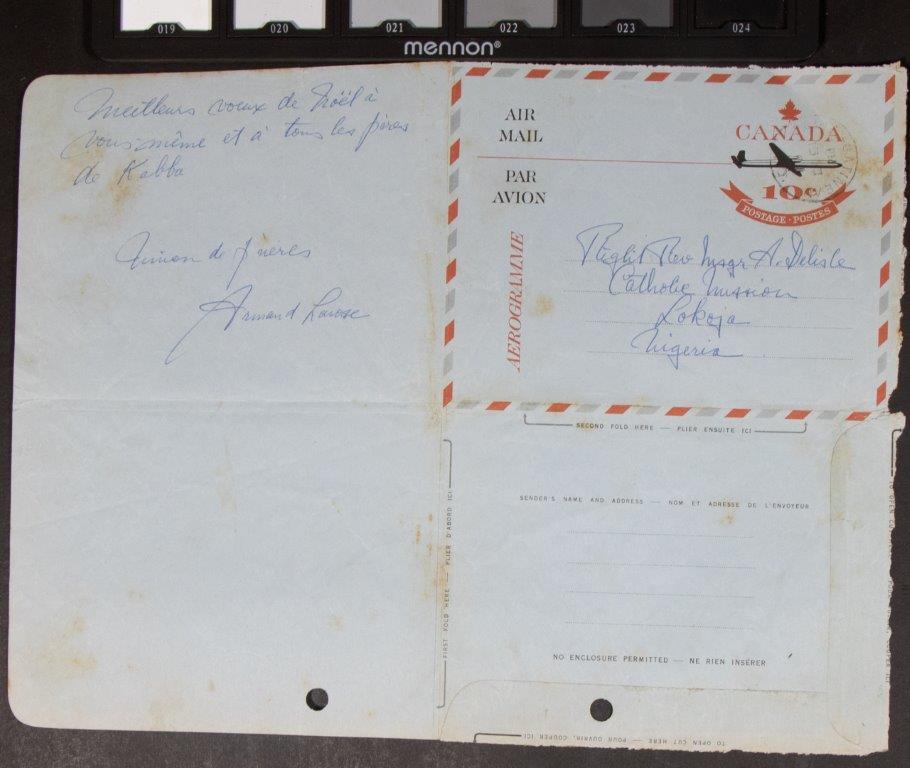 019 020 021 022 023 024
mennon®
Meilleurs voeux de Noël à
vous-même et à tous les pères
de Kabba
Union de prières
Armand Larose
AIR
MAIL
PAR
AVION
AEROGRAMME
CANADA
10¢
POSTAGE · POSTES
Right Rev Msgr A. Delisle
Catholic Mission
Lokoja
Nigeria
SECOND FOLD HERE — PLIER ENSUITE ICI
SENDER'S NAME AND ADDRESS — NOM ET ADRESSE DE L'ENVOYEUR
FIRST FOLD HERE — PLIER D'ABORD ICI
NO ENCLOSURE PERMITTED — NE RIEN INSÉRER
TO OPEN CUT HERE — POUR OUVRIR, COUPER ICI